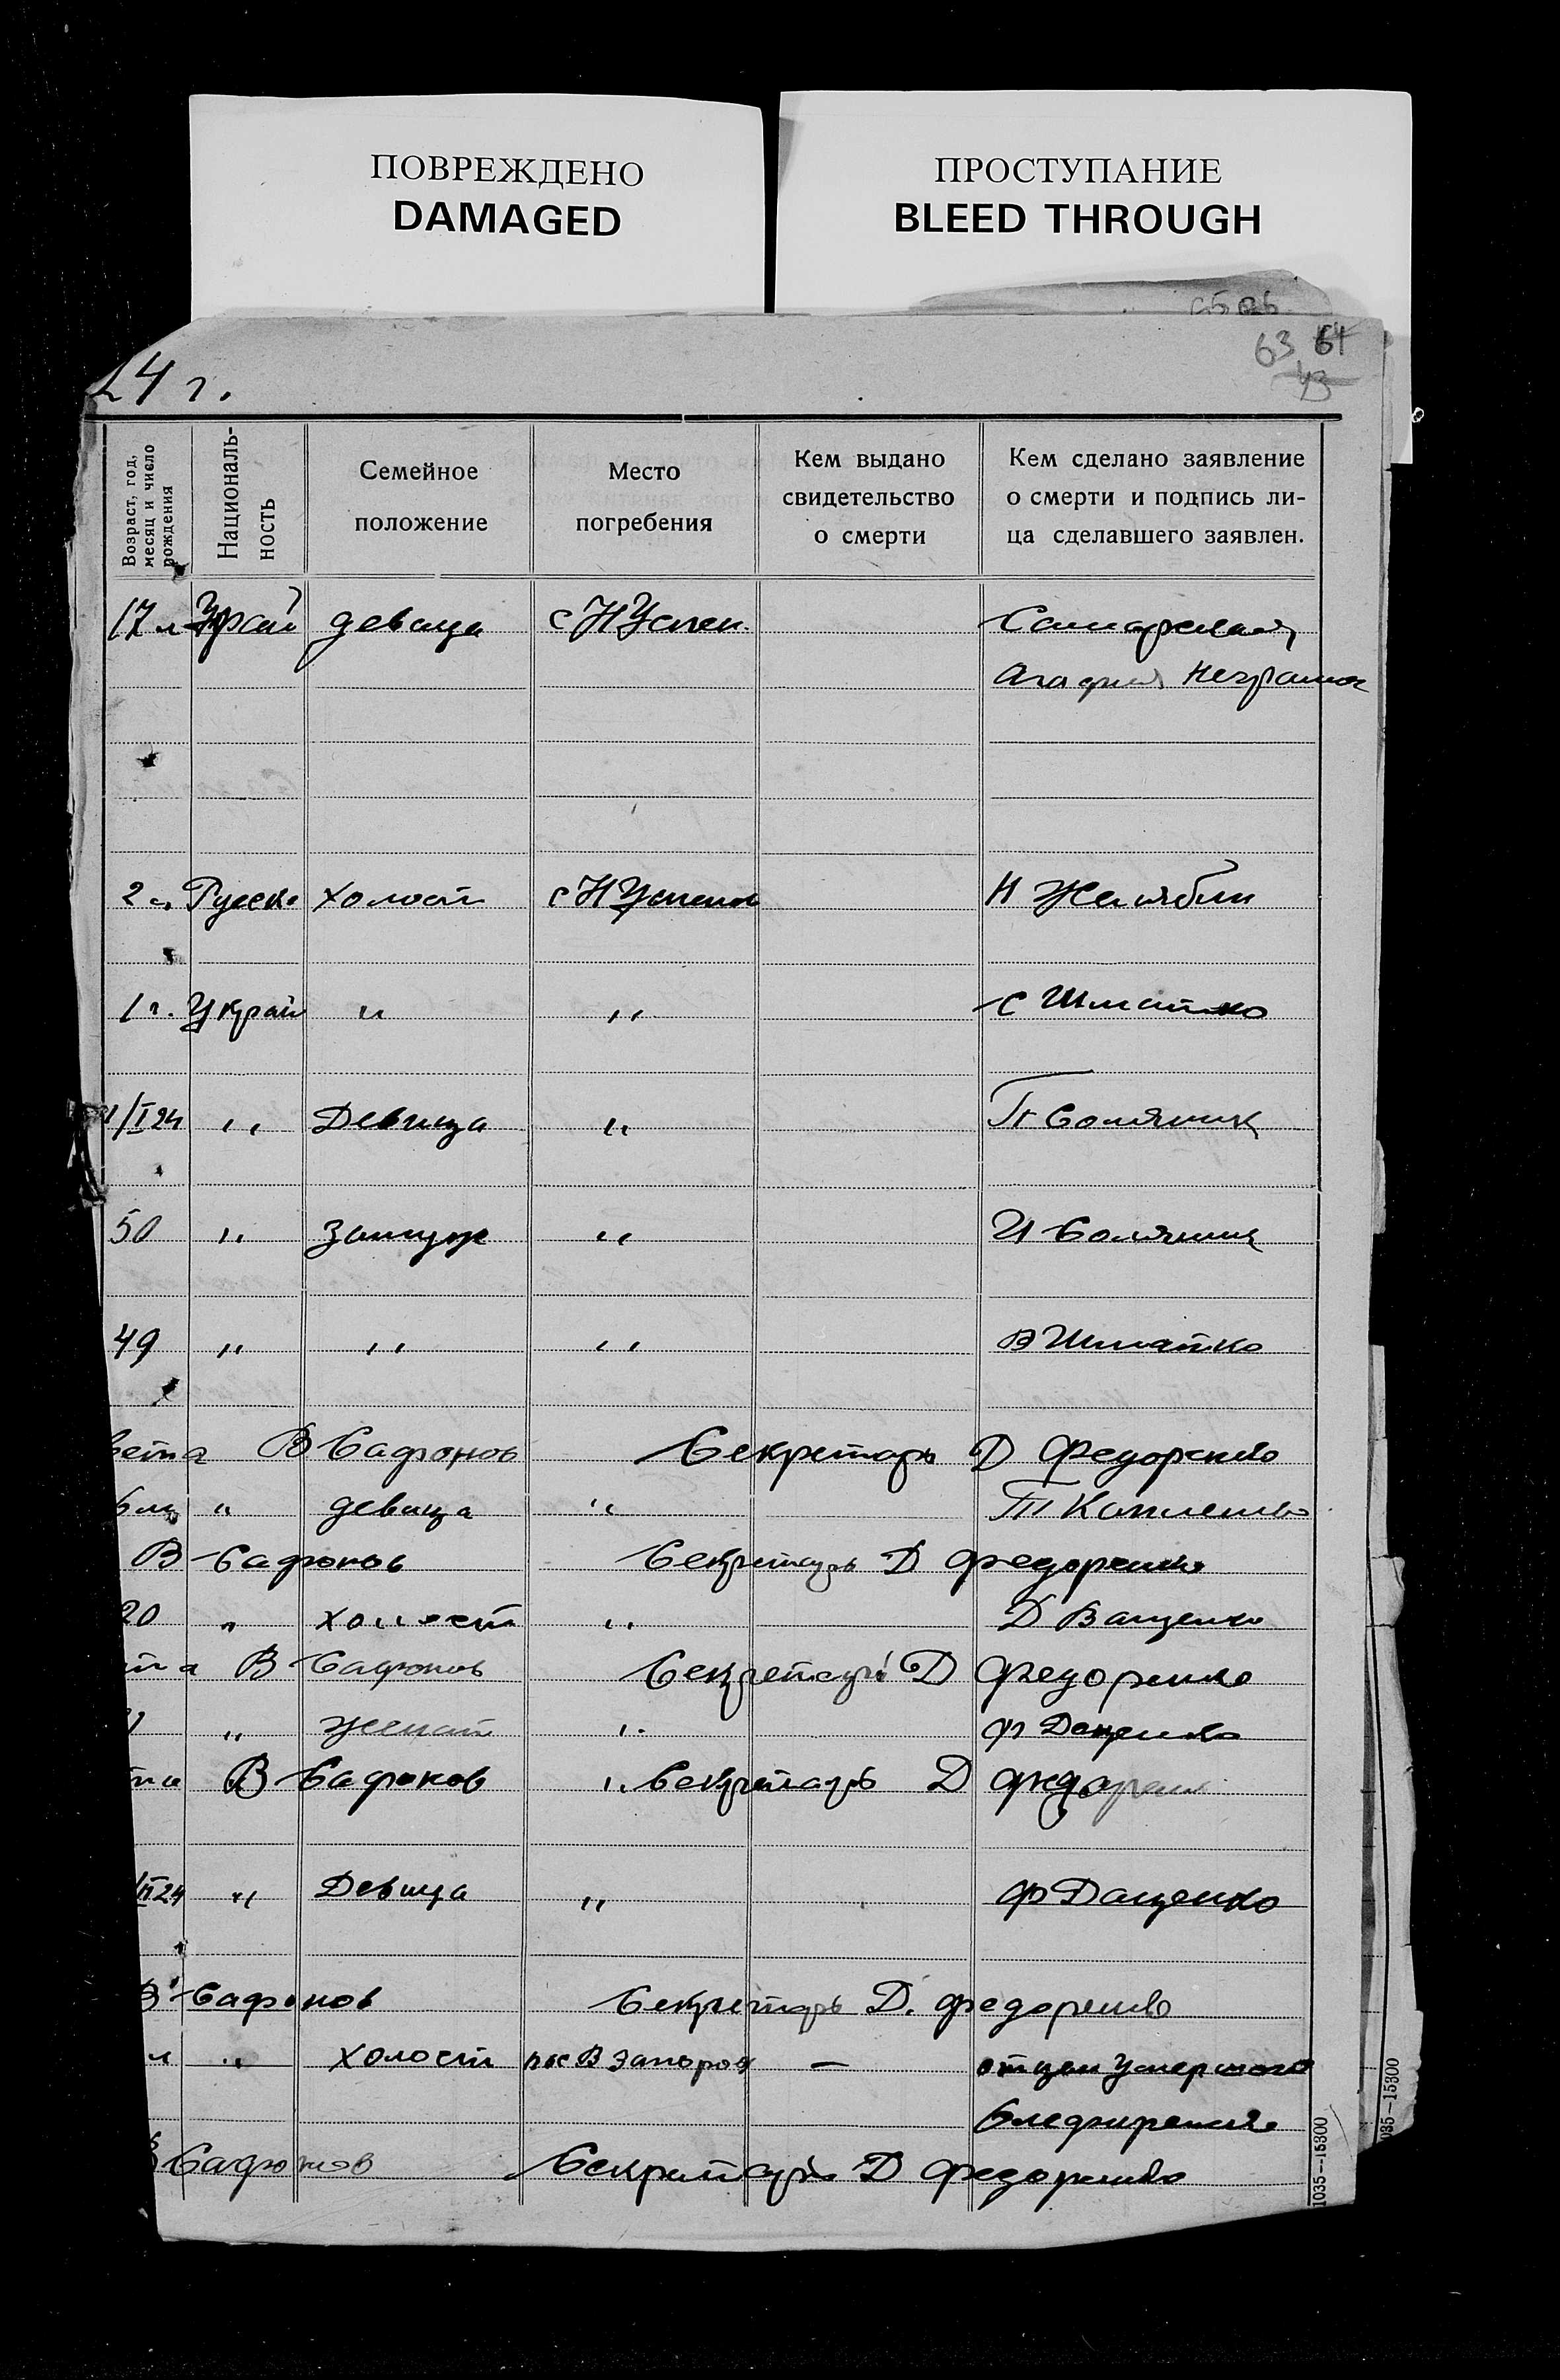 ПОВРЕЖДЕНО
DAMAGED
ПРОСТУПАНИЕ
BLEED THROUGH
63 64
43
24 г.
Возраст, год, месяц и число рождения
Националь-
ность
Семейное
положение
Место
погребения
Кем выдано
свидетельство
о смерти
Кем сделано заявление
о смерти и подпись ли-
ца сделавшего заявлен.
17 л Украй девица с Н Успен.
Агафия
2 г. Русск. холост с Н Успенов Н Желябин
1 г. Украй " " С Шматко
1/I 24 " Девица " П Солянник
50 " замуж " И Солянник
49 " " " В Шматко
вета В Сафонов Секретарь Д Федоренко
6 мц " девица " Т
В Сафонов Секретарь Д Федоренко
20 " холост " Д Ващенко
та В Сафонов Секретарь Д Федоренко
" женат " Ф Даценко
та В Сафонов " Секретарь Д Федорен
/II 24 " Девица " Ф Даценко
В Сафонов Секретарь Д. Федоренко
л " холост пос В Запорож — отцом умершого
В Сафонов Секретарь Д Федоренко
1035—15300
035—15300